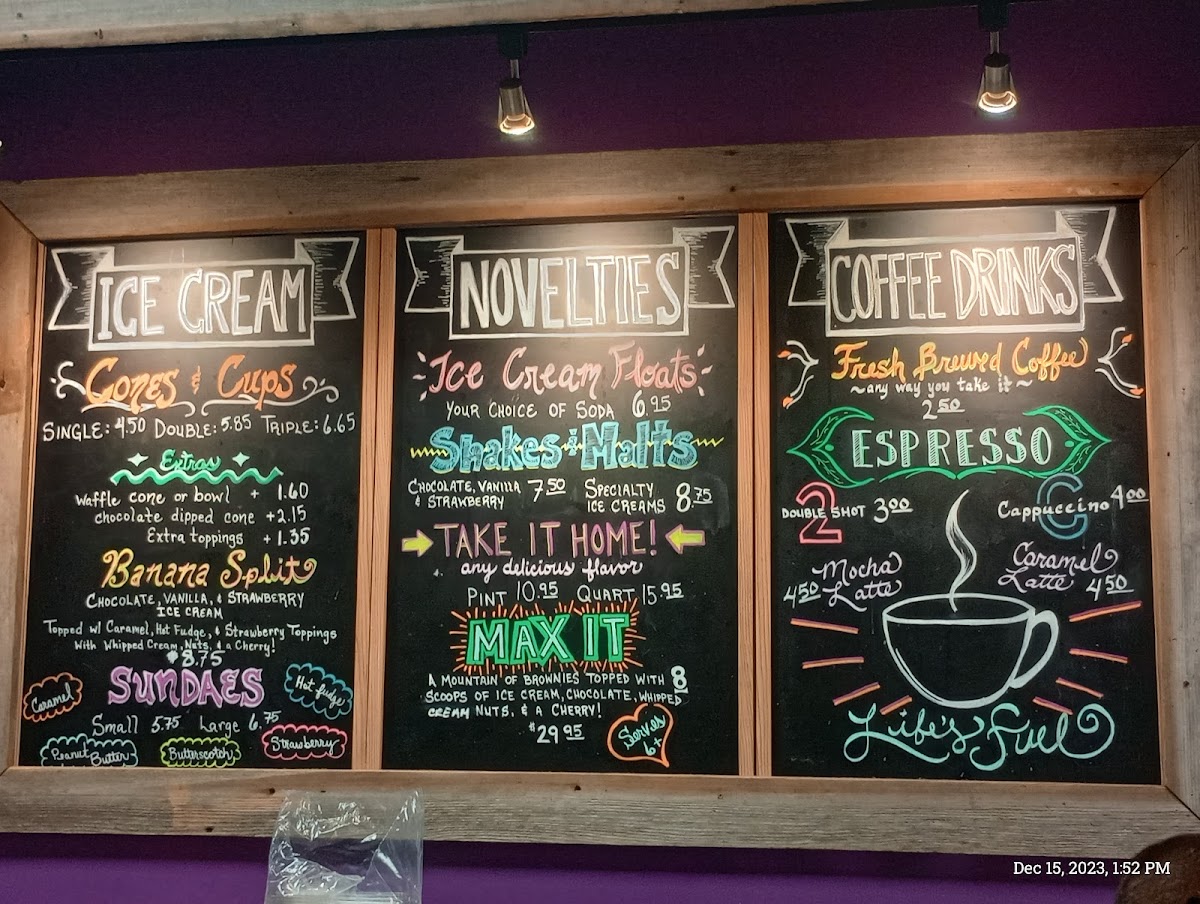 ICE CREAM
Cones & Cups
SINGLE: 4.50 DOUBLE: 5.85 TRIPLE: 6.65
Extras
Waffle cone or bowl + 1.60
chocolate dipped cone +2.15
Extra toppings + 1.35
Banana Split
CHOCOLATE, VANILLA, & STRAWBERRY
ICE CREAM
Topped w/ Caramel, Hot Fudge, & Strawberry Toppings
With Whipped Cream, Nuts, & a Cherry!
$8.75
SUNDAES
Caramel
Hot fudge
Small 5.75 Large 6.75
Peanut Butter
Butterscotch
Strawberry
NOVELTIES
Ice Cream Floats
YOUR CHOICE OF SODA 6.95
Shakes & Malts
CHOCOLATE, VANILLA & STRAWBERRY 7.50
SPECIALTY ICE CREAMS 8.75
TAKE IT HOME!
any delicious flavor
PINT 10.95 QUART 15.95
MAX IT
A MOUNTAIN OF BROWNIES TOPPED WITH 8
SCOOPS OF ICE CREAM, CHOCOLATE, WHIPPED
CREAM NUTS, & A CHERRY!
$29.95
Serves 6+
COFFEE DRINKS
Fresh Brewed Coffee
~any way you take it~
2.50
ESPRESSO
2 DOUBLE SHOT 3.00
C Cappuccino 4.00
Mocha Latte 4.50
Caramel Latte 4.50
Life's Fuel
Dec 15, 2023, 1:52 PM